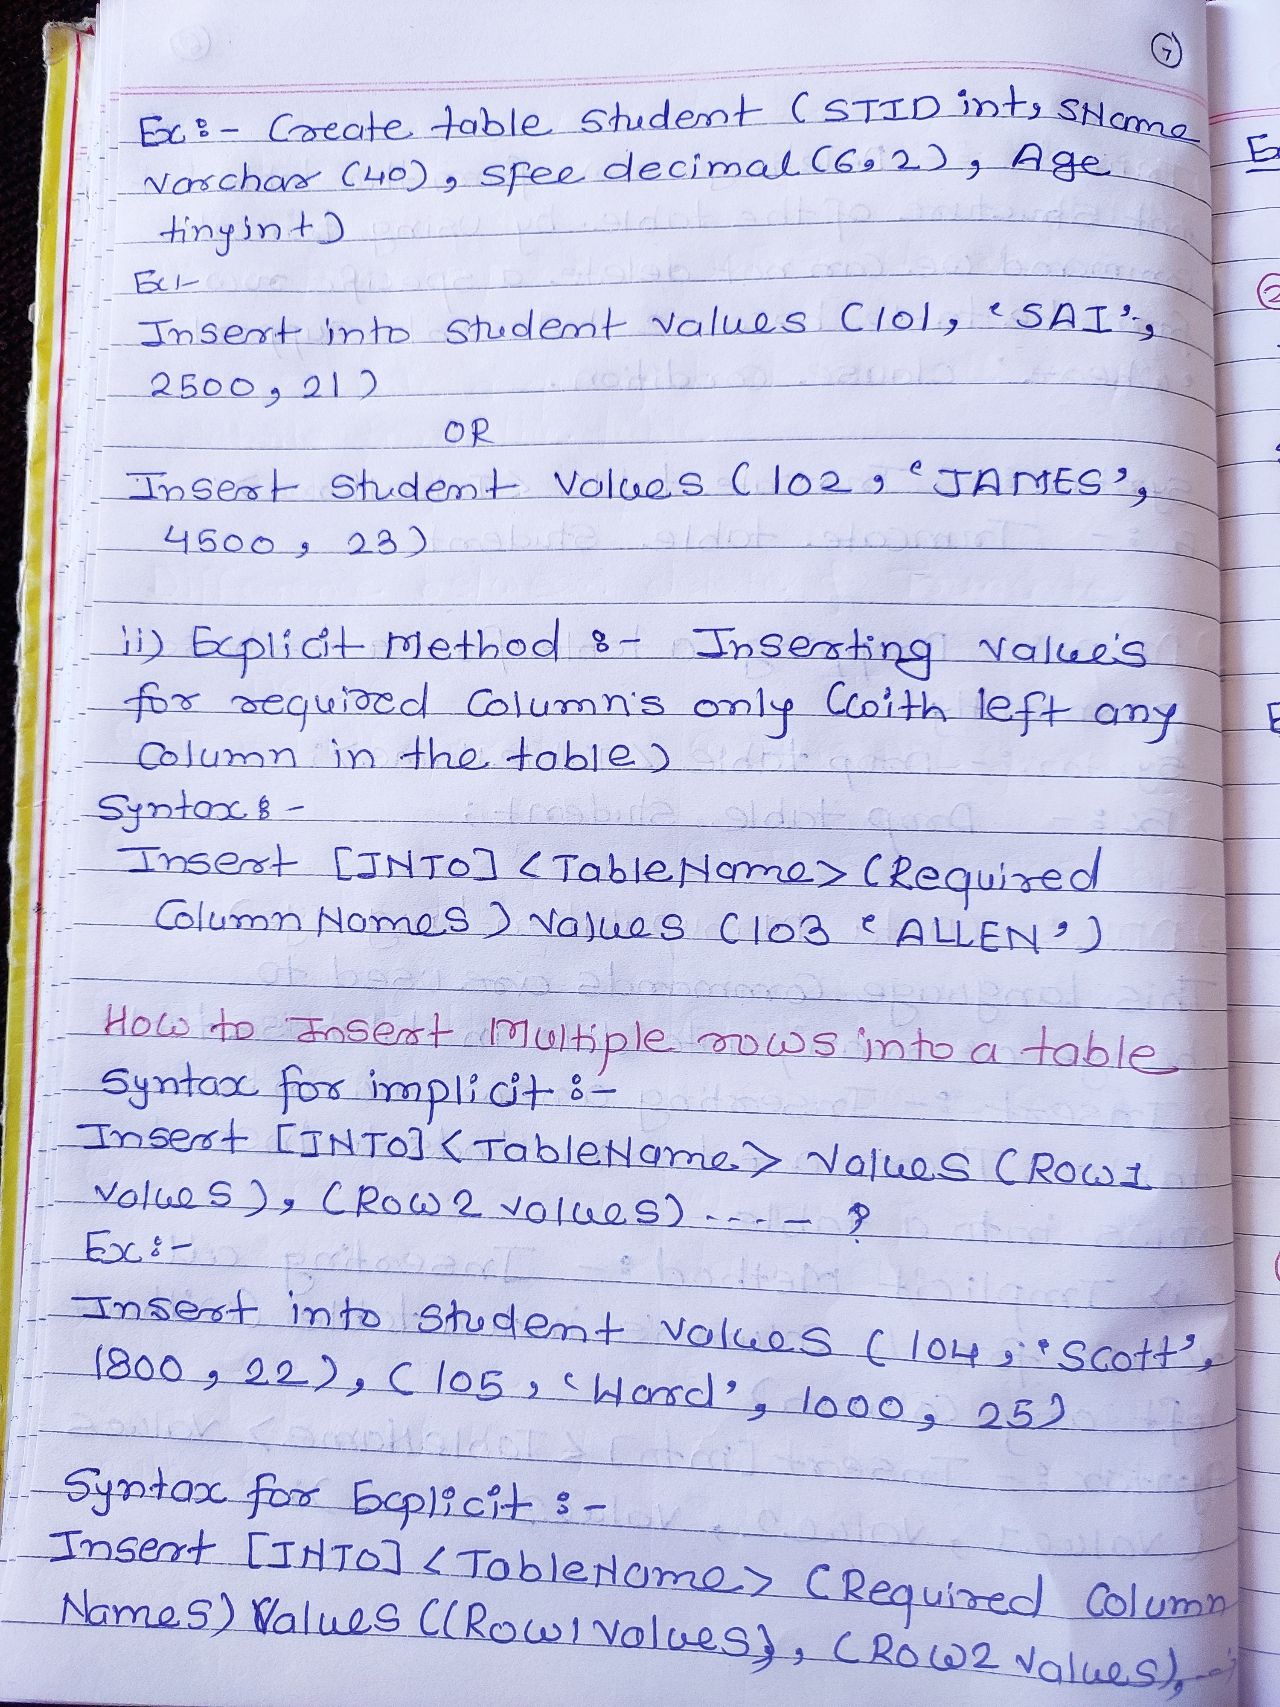 7
Ex:- Create table student (STID int, SName
varchar (40), sfee decimal (6,2), Age
tinyint)
Ex:-
Insert into student values (101, 'SAI',
2500, 21)
OR
Insert student values (102, 'JAMES',
4500, 23)
ii) Explicit Method :- Inserting value's
for required column's only (with left any
column in the table)
Syntax :-
Insert [INTO] <TableName> (Required
Column Names) values (103 'ALLEN')
How to Insert Multiple rows into a table
Syntax for implicit :-
Insert [INTO] <TableName> values (ROW1
values), (ROW2 values) .... - ?
Ex:-
Insert into student values (104, 'Scott',
1800, 22), (105, 'Ward', 1000, 25)
Syntax for Explicit :-
Insert [INTO] <TableName> (Required Column
Names) Values ((Row1 values), (ROW2 values),